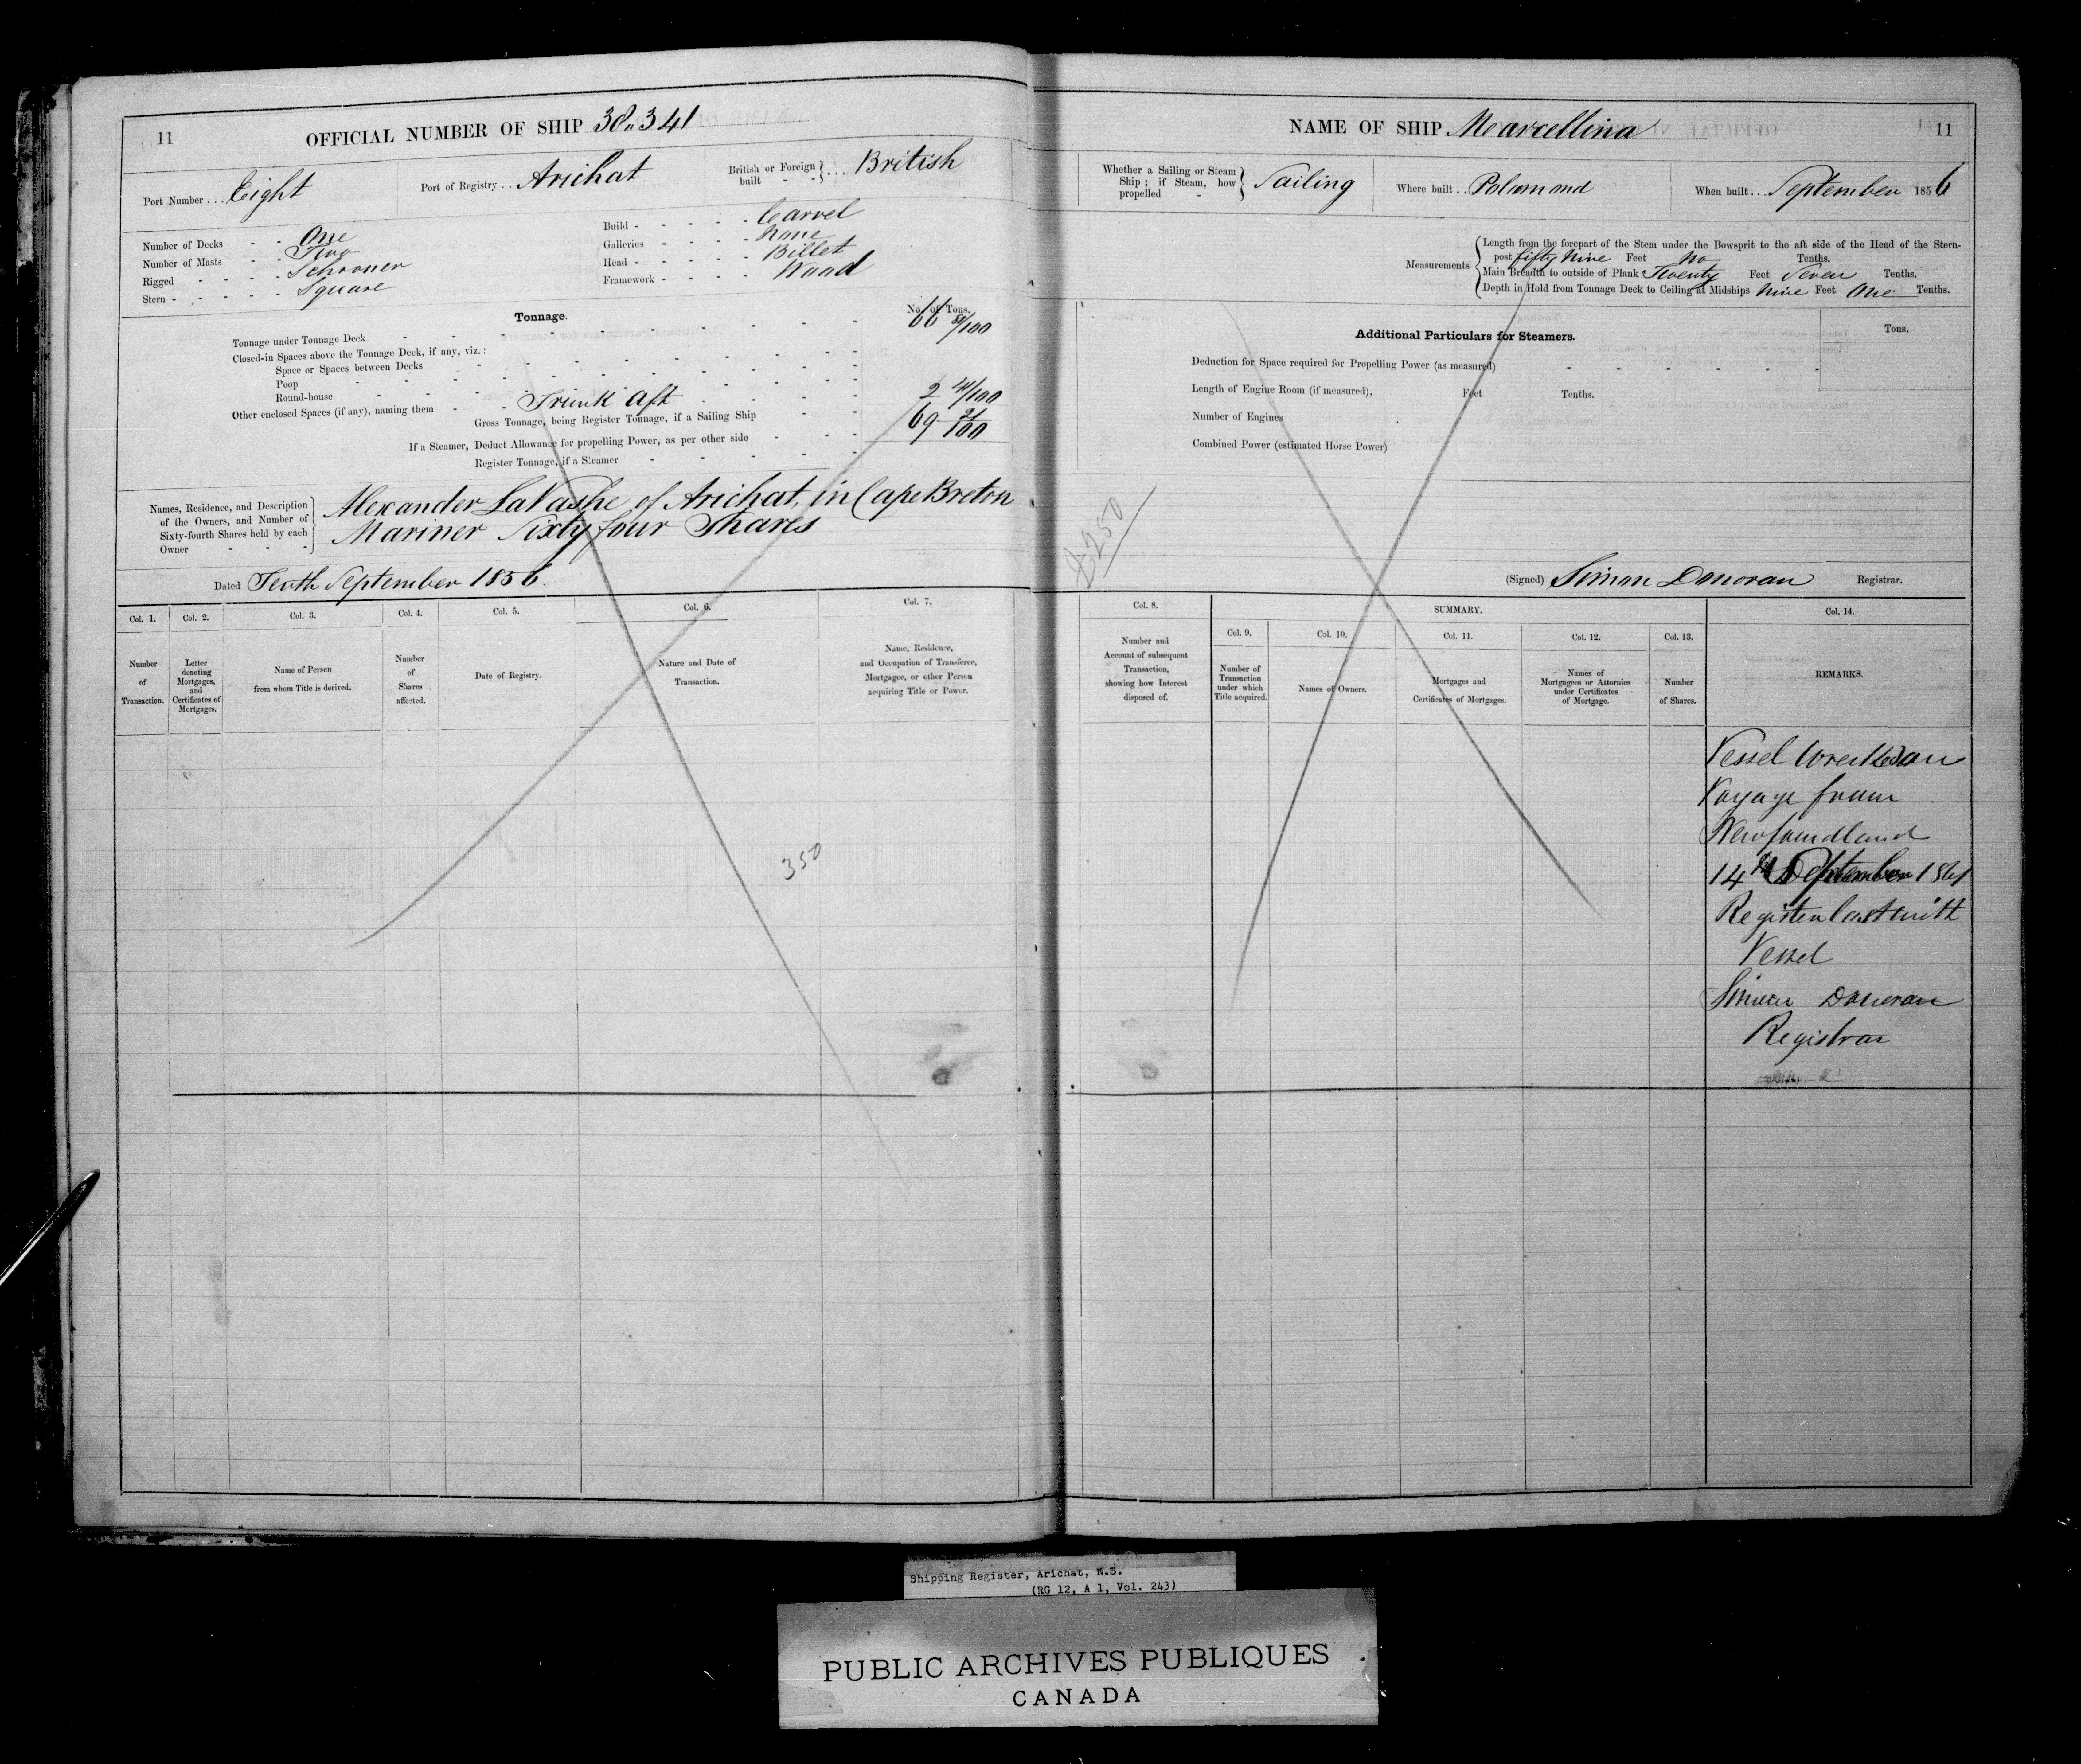 11
OFFICIAL NUMBER OF SHIP 38,,341
Port Number ... Eight
Port of Registry .. Arichat
British or Foreign built - - } ... British
Number of Decks - - One
Number of Masts - - Two
Rigged - - - - Schooner
Stern - - - - - Square
Build - - - - - Carvel
Galleries - - - - None
Head - - - - - Billet
Framework - - - - Wood
Tonnage.
No. of Tons.
Tonnage under Tonnage Deck - - 66 /100
Closed-in Spaces above the Tonnage Deck, if any, viz.:
Space or Spaces between Decks
Poop
Round-house
Other enclosed Spaces (if any), naming them - - Trunk Aft 2 /100
Gross Tonnage, being Register Tonnage, if a Sailing Ship 69 21/100
If a Steamer, Deduct Allowance for propelling Power, as per other side
Register Tonnage, if a Steamer
Names, Residence, and Description
of the Owners, and Number of
Sixty-fourth Shares held by each
Owner - - -
Alexander LaVashe of Arichat, in Cape Breton
Mariner Sixty four Shares
Dated Tenth September 1856.
Col. 1.
Number
of
Transaction.
Col. 2.
Letter
denoting
Mortgages,
and
Certificates of
Mortgages.
Col. 3.
Name of Person
from whom Title is derived.
Col. 4.
Number
of
Shares
affected.
Col. 5.
Date of Registry.
Col. 6.
Nature and Date of
Transaction.
Col. 7.
Name, Residence,
and Occupation of Transferee,
Mortgagee, or other Person
acquiring Title or Power.
350
NAME OF SHIP Mearcellina
11
Whether a Sailing or Steam
Ship; if Steam, how
propelled - } Sailing
Where built .. Polamond
When built ... September 1856
Measurements
Length from the forepart of the Stem under the Bowsprit to the aft side of the Head of the Stern-
post fifty Nine Feet No Tenths.
Main Breadth to outside of Plank Twenty Feet Seven Tenths.
Depth in Hold from Tonnage Deck to Ceiling at Midships Nine Feet One Tenths.
Additional Particulars for Steamers.
Tons.
Deduction for Space required for Propelling Power (as measured)
Length of Engine Room (if measured), Feet Tenths.
Number of Engines
Combined Power (estimated Horse Power)
250
(Signed) Simon Donovan Registrar.
Col. 8.
Number and
Account of subsequent
Transaction,
showing how Interest
disposed of.
SUMMARY.
Col. 9.
Number of
Transaction
under which
Title acquired.
Col. 10.
Names of Owners.
Col. 11.
Mortgages and
Certificates of Mortgages.
Col. 12.
Names of
Mortgagees or Attornies
under Certificates
of Mortgage.
Col. 13.
Number
of Shares.
Col. 14.
REMARKS.
Vessel Wrecked on
Voyage from
Newfoundland
14th September 1861
Register Lost with
Vessel
Simon Donovan
Registrar
Shipping Register, Arichat, N.S.
(RG 12, A 1, Vol. 243)
PUBLIC ARCHIVES PUBLIQUES
CANADA